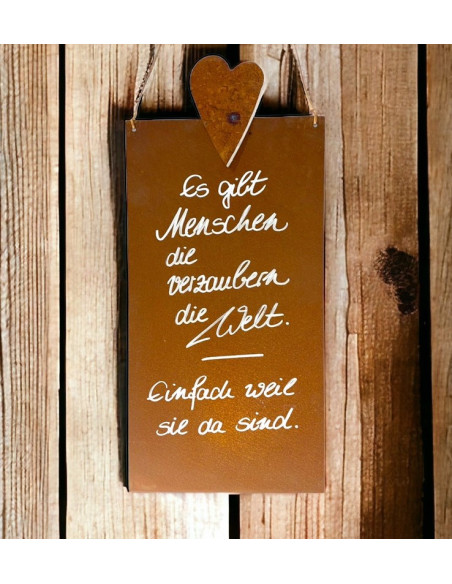 Es gibt
Menschen
die
verzaubern
die Welt.
Einfach weil
sie da sind.